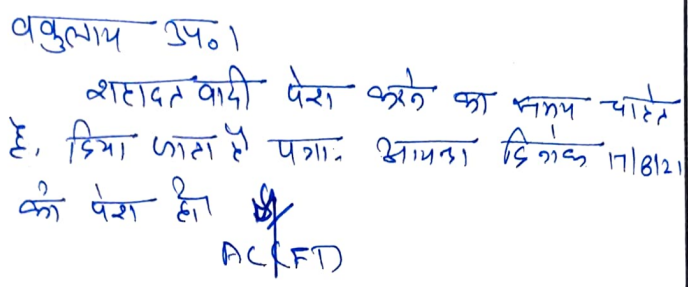 वकुलाय उप०।
शहादत वादी पेश करने का समय चाहते
है, दिया जाता है पत्रा. आयन्दा दिनांक 17/8/21
को पेश हो।
AC(FT)